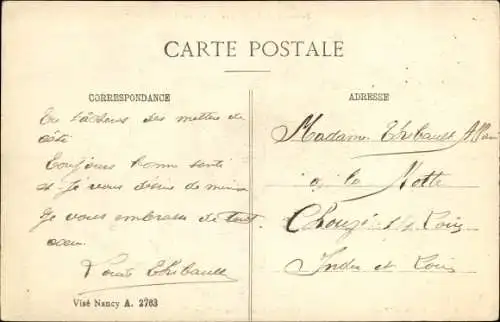 CARTE POSTALE
CORRESPONDANCE
des mettre de
côté
Toujours bonne santé
et je vous désire de même
Je vous embrasse de tout
cœur.
Louis Thibault
Visé Nancy A. 2763
ADRESSE
Madame Thibault
à la Motte
Chouzé s/ Loire
Indre et Loire